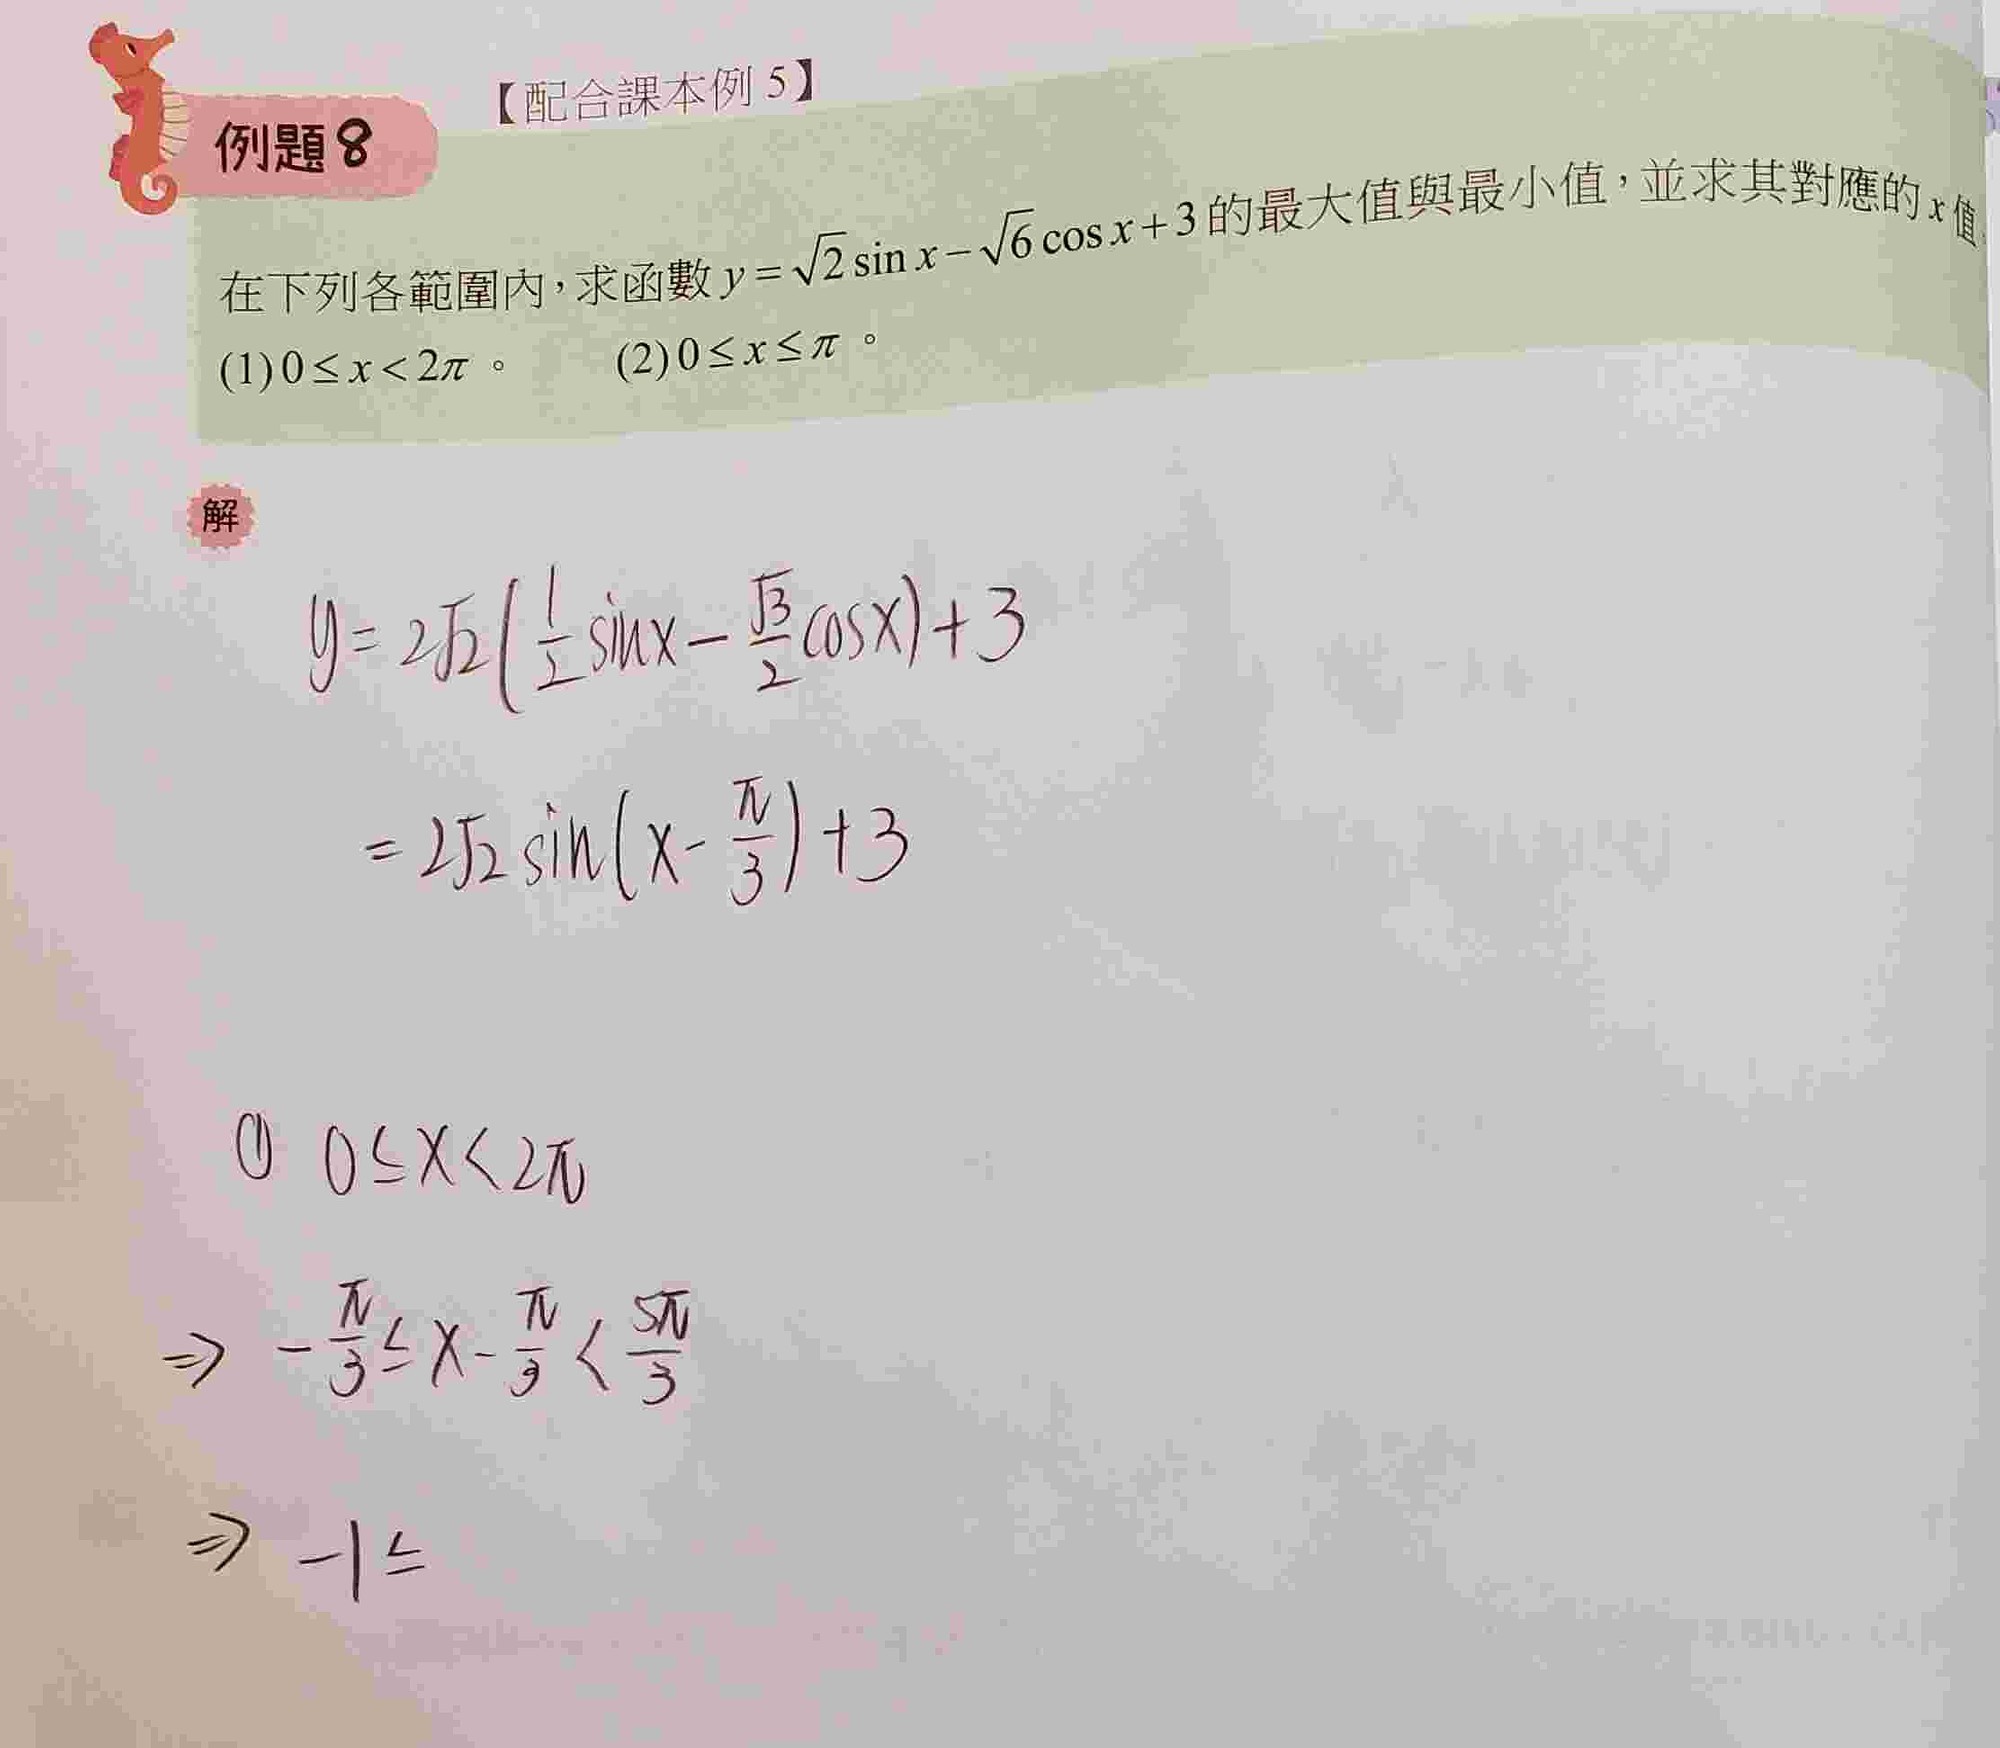 【配合課本例 5】
例題8
在下列各範圍內，求函數 y = √2 sin x − √6 cos x + 3 的最大值與最小值，並求其對應的 x 值
(1) 0 ≤ x < 2π 。 (2) 0 ≤ x ≤ π 。
解
y = 2√2 ( 1/2 sinx − √3/2 cosx) + 3
= 2√2 sin(x − π/3) + 3
(1) 0 ≤ x < 2π
⇒ −π/3 ≤ x − π/3 < 5π/3
⇒ −1 ≤